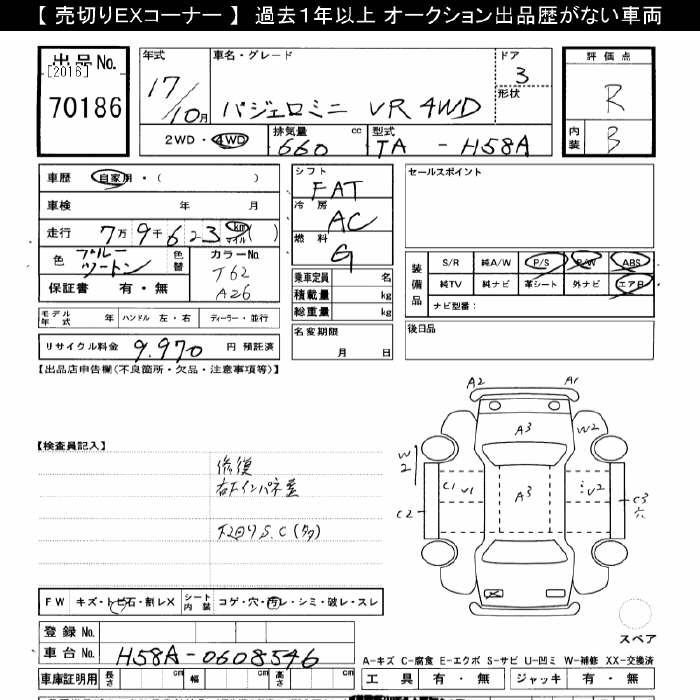 【 売切りEXコーナー 】 過去1年以上 オークション出品歴がない車両
出品No.
[2016]
70186
年式
17/10月
車名・グレード
パジェロミニ VR 4WD
ドア
3
形状
2WD・4WD
排気量
660 cc
型式
TA - H58A
評価点
R
内装
B
車歴 自家用・( )
車検 年 月
走行 7万9千623 km マイル ( )
色 ブルーツートン 色替
カラーNo.
T62
A26
保証書 有・無
シフト
FAT
冷房
AC
燃料
G
乗車定員 名
積載量 kg
総重量 kg
セールスポイント
装備品
S/R 純A/W P/S P/W ABS
純TV 純ナビ 革シート 外ナビ エアB
ナビ型番:
モデル年式 年 ハンドル 左・右 ディーラー・並行
リサイクル料金 9,970 円 預託済
名変期限
月 日
後日品
【出品店申告欄(不良箇所・欠品・注意事項等)】
【検査員記入】
修復
右下インパネ差
下回りS.C(多)
A2 A1
A3
W2
W2
C1 V1 A3 V2
C2
C3
穴
スペア
FW キズ・トビ石・割レX シート内装 コゲ・穴・汚レ・シミ・破レ・スレ
登録No.
車台No. H58A-0608546
A-キズ C-腐食 E-エクボ S-サビ U-凹ミ W-補修 XX-交換済
車庫証明用 長さ cm 幅 cm 高さ cm
工具 有・無 ジャッキ 有・無